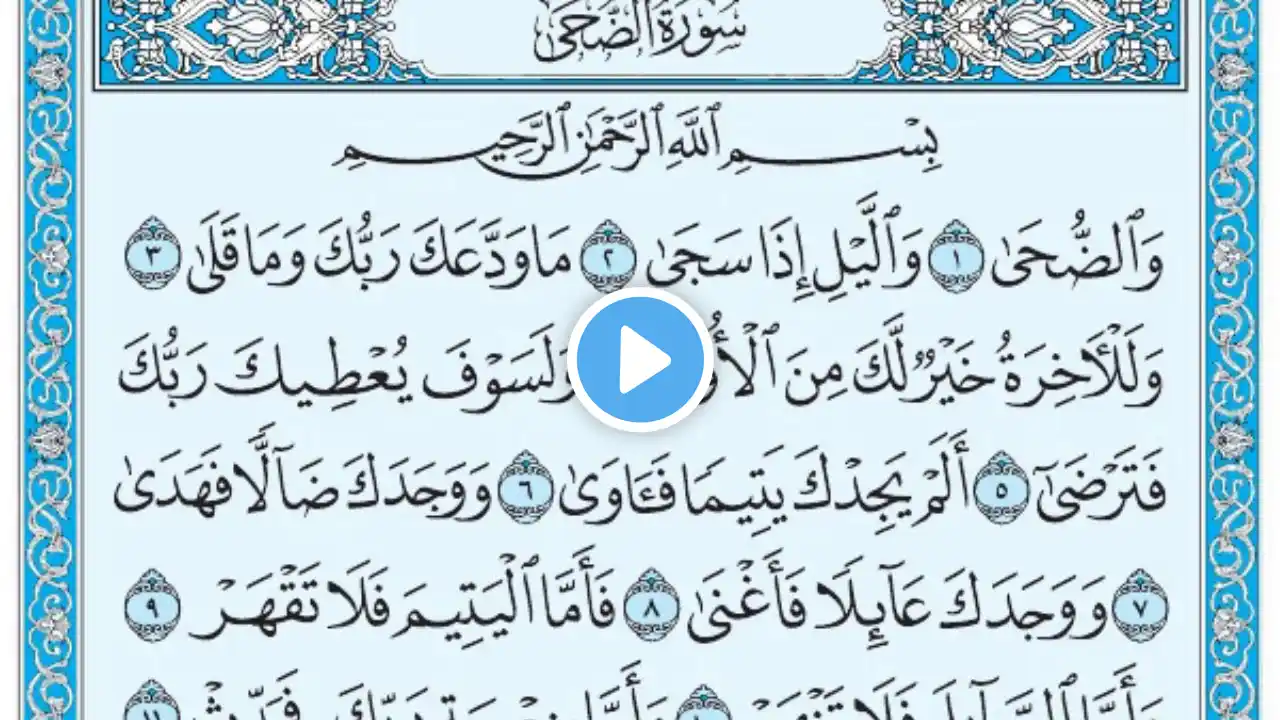 سُورَةُ الضُّحَىٰ
بِسْمِ ٱللَّهِ ٱلرَّحْمَٰنِ ٱلرَّحِيمِ
وَٱلضُّحَىٰ ١ وَٱلَّيْلِ إِذَا سَجَىٰ ٢ مَا وَدَّعَكَ رَبُّكَ وَمَا قَلَىٰ ٣
وَلَلْأَخِرَةُ خَيْرٌ لَّكَ مِنَ وَلَسَوْفَ يُعْطِيكَ رَبُّكَ
فَتَرْضَىٰٓ ٥ أَلَمْ يَجِدْكَ يَتِيمًا فَـَٔاوَىٰ ٦ وَوَجَدَكَ ضَآلًّا فَهَدَىٰ
٧ وَوَجَدَكَ عَآئِلًا فَأَغْنَىٰ ٨ فَأَمَّا ٱلْيَتِيمَ فَلَا تَقْهَرْ ٩
وَأَمَّا ٱلسَّآئِلَ فَلَا تَنْهَرْ ١٠ وَأَمَّا بِنِعْمَةِ رَبِّكَ فَحَدِّثْ ١١